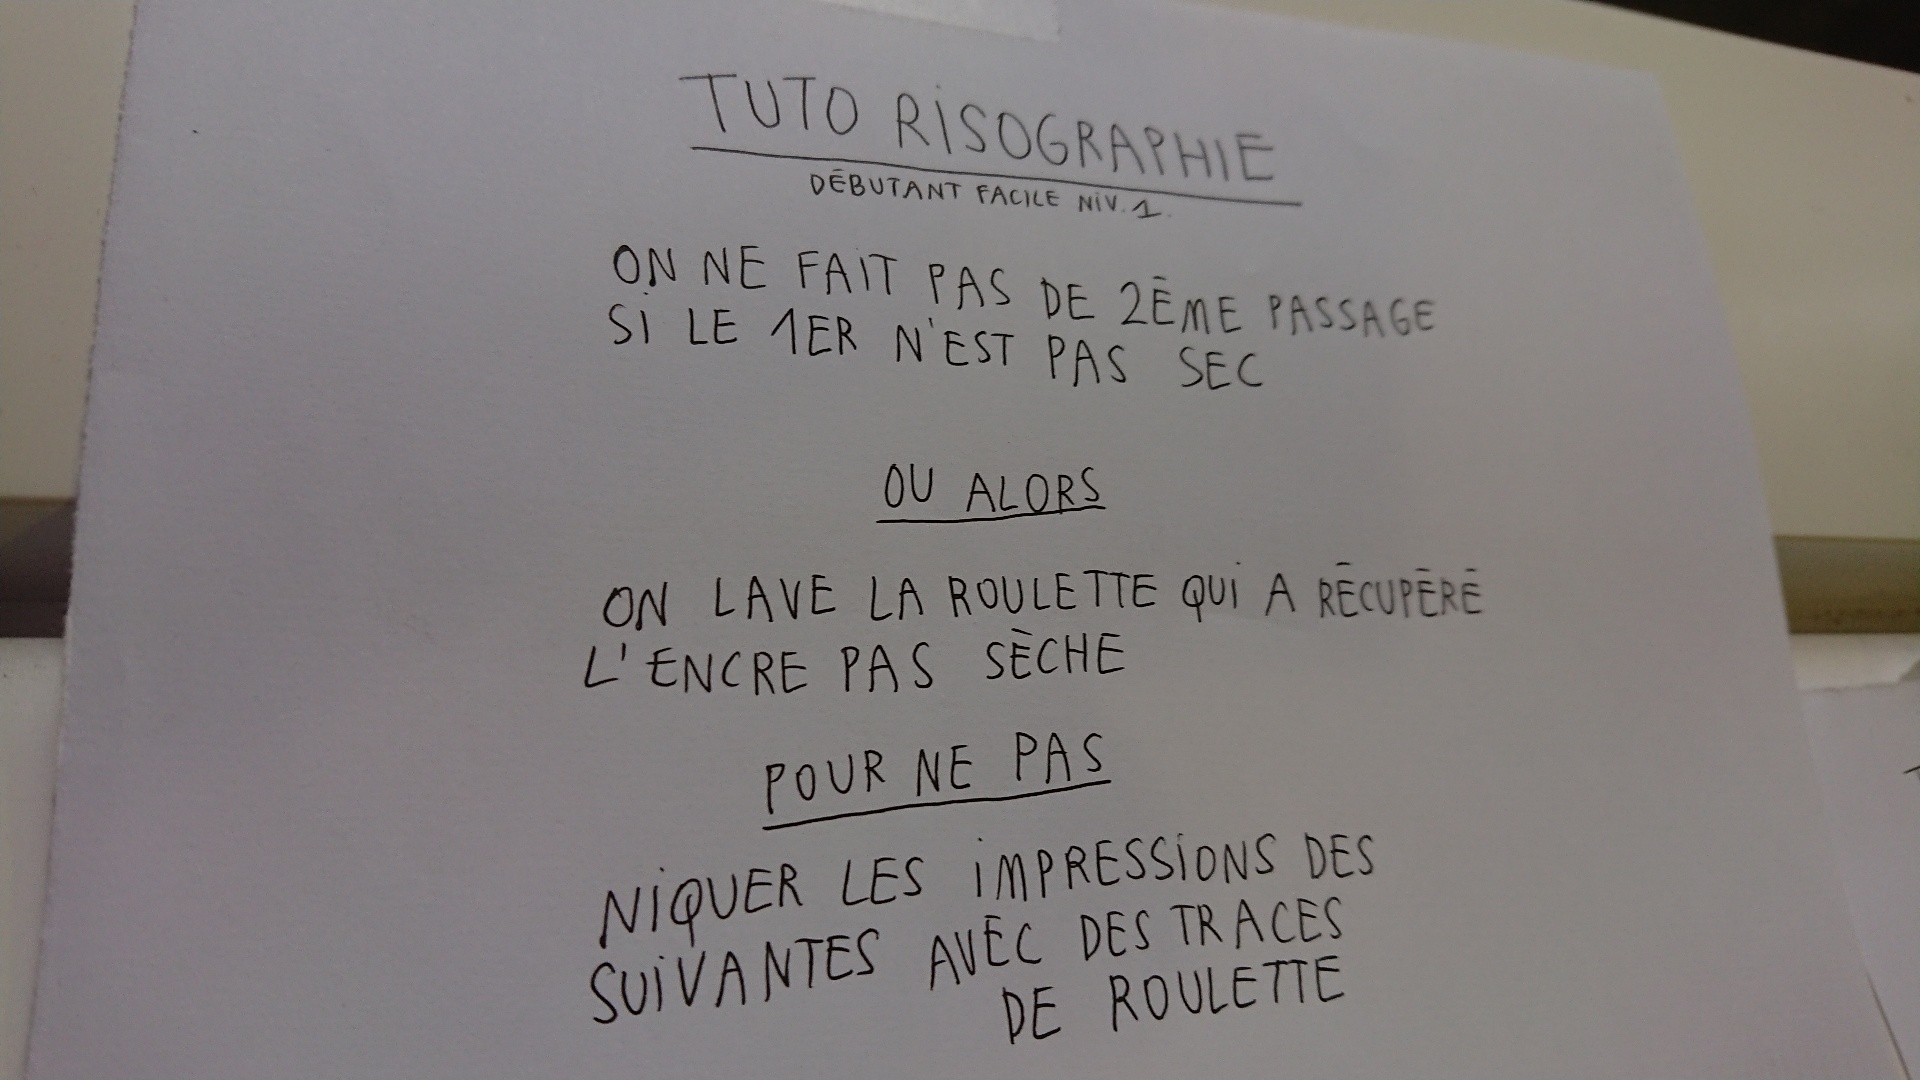 TUTO RISOGRAPHIE
DÉBUTANT FACILE NIV. 1.
ON NE FAIT PAS DE 2ÈME PASSAGE
SI LE 1ER N'EST PAS SEC
OU ALORS
ON LAVE LA ROULETTE QUI A RÉCUPÉRÉ
L'ENCRE PAS SÈCHE
POUR NE PAS
NIQUER LES IMPRESSIONS DES
SUIVANTES AVÉC DES TRACES
DE ROULETTE